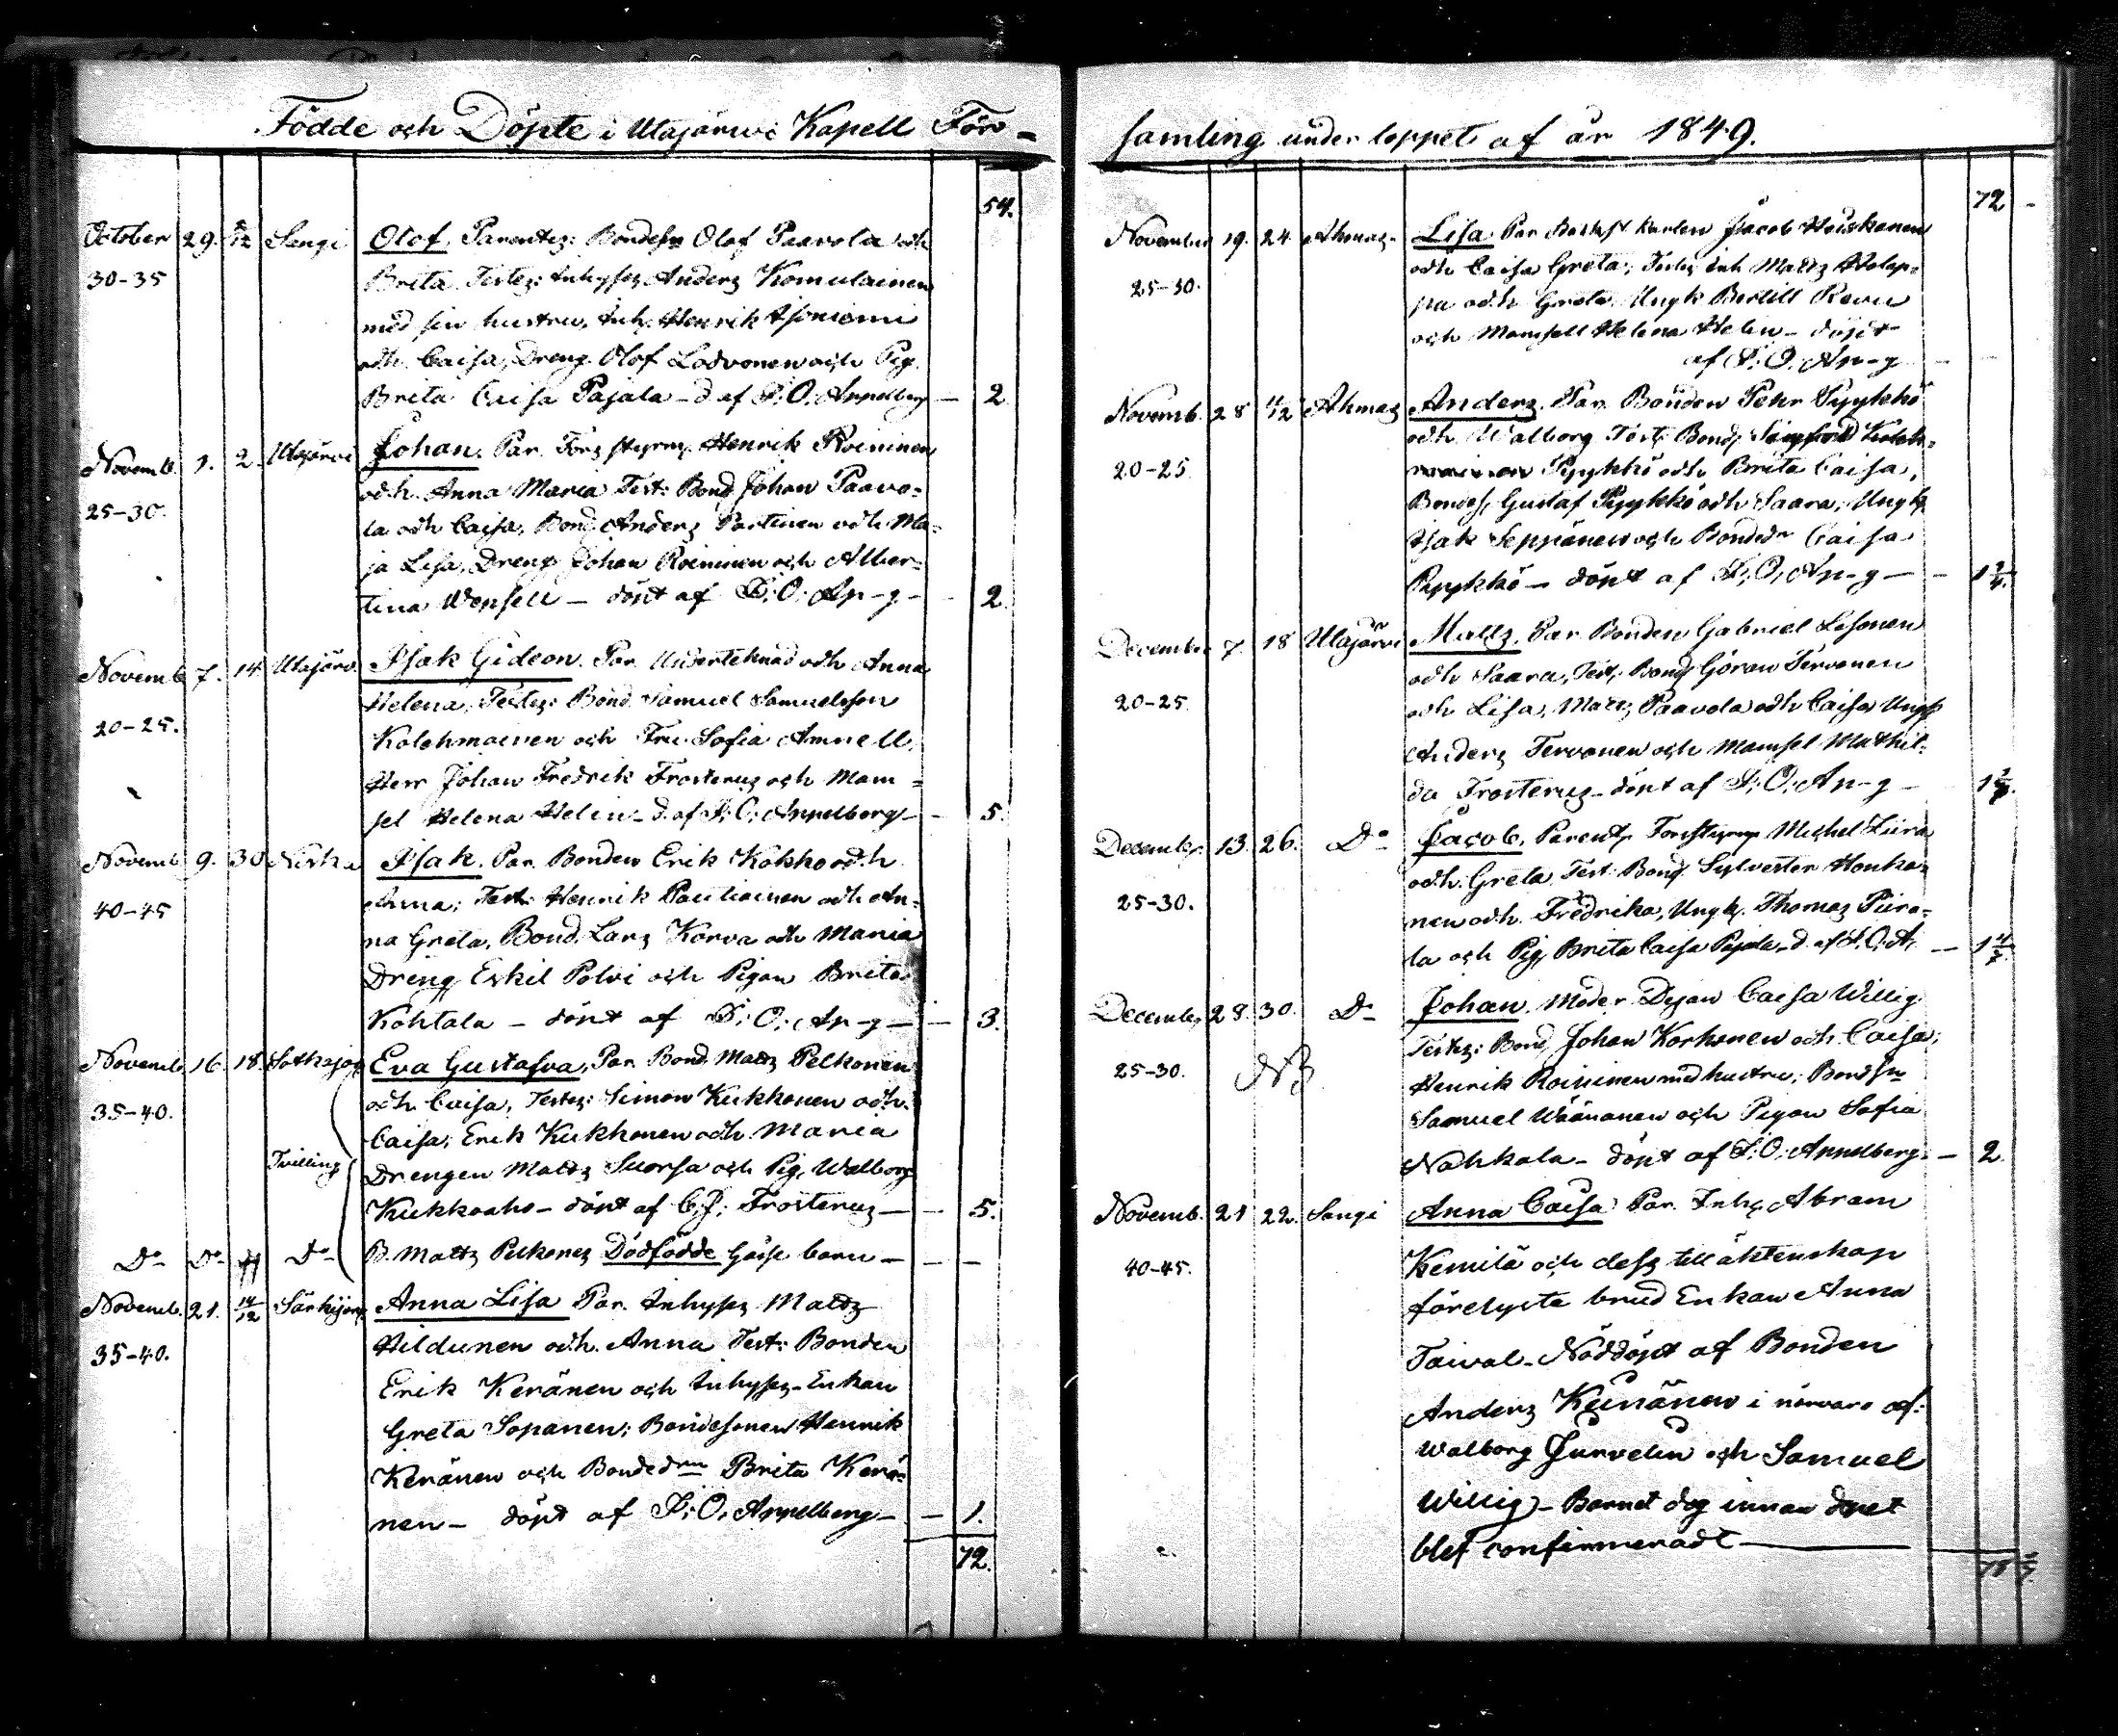 Födde och Döpte i Utajärwi Kapell För-
54.
October 29. Sangi Olof. Parentes: Bondesn Olof Paavola och
30-35 Brita. Testes: Inhyses Anders Komulainen
med sin hustru, Inh. Henrik
och Caisa, Dreng Olof och Pig.
Brita Caisa Pajala - d. af I. O. Appelberg - 2
Novemb. 1. 2. Utajärvi Johan. Par. Henrik Roininen
och Anna Maria Test: Bond Johan Paavo-
25-30. la och Caisa, Bond. Anders Partinen och Ma-
ja Lisa, Dreng Johan Roininen och Alber-
tina - döpt af I. O. Ap-g - 2.
Novemb 7. 14. Utajärv. Isak Gideon. Par. Underteknad och Anna
Helena, Testes: Bond. Samuel Samuelsson
20-25. Kolehmainen och Fru Sofia Amnell,
Herr Johan Fredrik Frosterus och Mam-
sel Helena Helin - d. af I. O. Appelberg - 5.
Novemb 9. 30 Isak. Par. Bonden Erik Kokko och
40-45 Anna; Test: Henrik Pautiainen och An-
na Greta, Bond. Lars Korva och Maria
Dreng Eskil Polvi och Pigan Brita
Kohtala - döpt af I. O. Ap-g - 3.
Novemb 16. 18. Eva Gustafva, Par. Bond. Matts Pelkonen
35-40. och Caisa, Testes: Simon Kukkonen och
Caisa; Erik Kukkonen och Maria
Tvilling Drengen Matts Suorsa och Pig. Walborg
Kukkoaho - döpt af C. J. Frosterus - 5.
Do Do Do B. Matts Pelkones Dödfödde barn -
Novemb. 21. 14/12 Anna Lisa Par. Inhyses Matts
35-40. Hildunen och Anna Test: Bonden
Erik Keränen och Inhyses-Enkan
Greta Sopanen; Bondesonen Henrik
Keränen och Bondedrn Brita Kerä-
nen - döpt af I. O. Appelberg - 1.
72.
samling under loppet af år 1849.
72
November 19. 24. Ahmas Lisa Par. Karlen Jacob Heiskanen
25-30. och Caisa Greta; Testes Inh Matts Holap-
pa och Greta, Ungk Bertill Revu
och Mamsell Helena Helin - döpt
af I. O. Ap-g
Novemb. 28 Ahmas Anders. Par. Bonden Pehr Pyykkö
och Walborg Test: Bond.
20-25 Pyykkö och Brita Caisa,
Bondes. Gustaf Pyykkö och Saara; Ungk.
Isak Seppänen och Bondedr Caisa
Pyykkö - döpt af I. O. Ap-g -
December 7. 18 Utajärvi Matts. Par. Bonden Gabriel Lesonen
och Saara, Test: Bond Göran Tervonen
20-25 och Lisa, Matts Paavola och Caisa Ungk
Anders Tervonen och Mamsel Mathil-
da Frosterus - döpt af I. O. Ap-g
December 13. 26. Do Jacob, Parent. Michel
och Greta Test: Bond. Sylvester Honka-
25-30. nen och Fredrika, Ungk. Thomas
la och Pig. Brita Caisa Pajala - d. af I. O. A.
December 28. 30. Do Johan. Moder Caisa Willig
Testes: Bond Johan Korhonen och Caisa;
25-30. NB Henrik Roininen med hustru; Bondsn
Samuel Wäänänen och Pigan Sofia
Nahkala - döpt af I. O. Appelberg - 2
Novemb. 21 22. Sangi Anna Caisa Par. Inh. Abram
40-45. Kemilä och dess till äktenskap
förelyste brud Enkan Anna
Taival - Nöddöpt af Bonden
Anders i närvaro af
Walborg Jurvelin och Samuel
Willig - Barnet dog innan dopet
blef confirmeradt